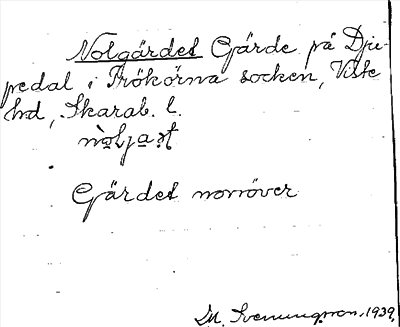 Nolgärdet Gärde på Dju-
pedal i Frökörna socken, Viste
hd, Skarab. l.
Gärdet norröver
M. Svenungsson, 1939.